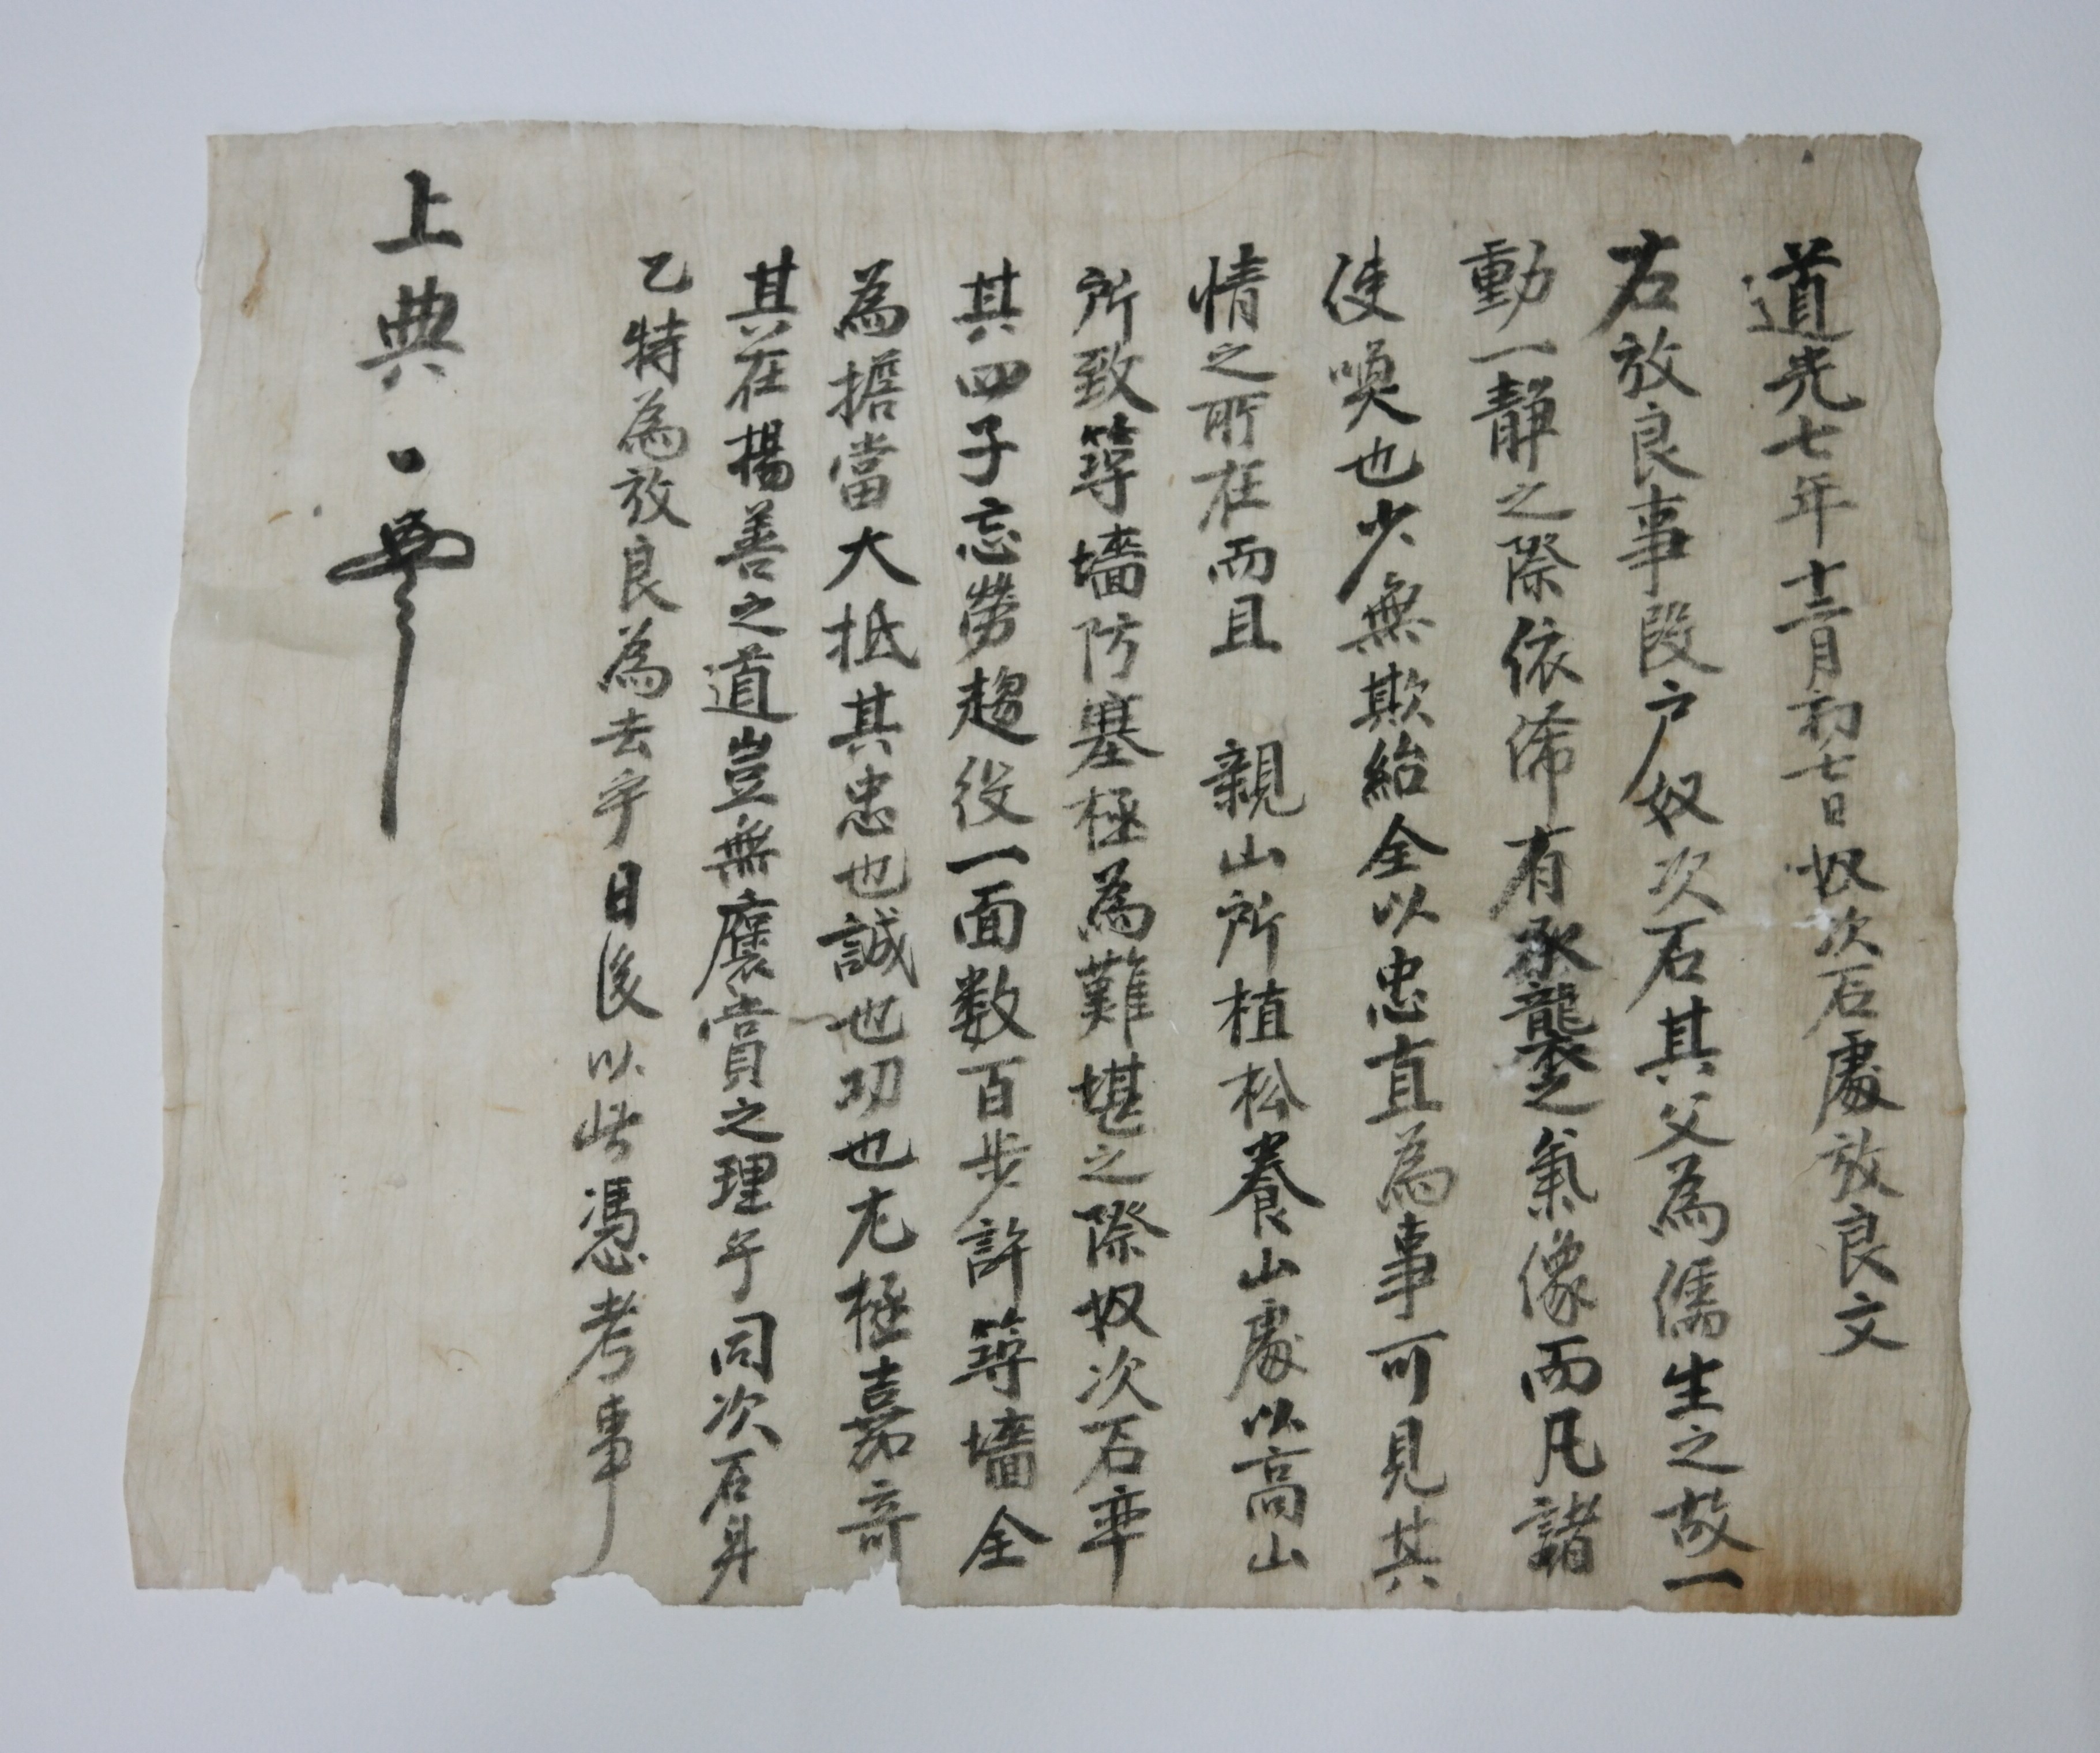 道光七年十二月初七日奴次石處放良文
右放良事段戶奴次石其父為儒生之故一
動一靜之際依俙有承襲之氣像而凡諸
使喚也少無欺紿全以忠直為事可見其
情之所在而且 親山所植松養山處以高山
所致築墻防塞極為難堪之際奴次石率
其四子忘勞趨役一面数百步許築墻全
為擔當大抵其忠也誠也功也尤極嘉奇
其在揚善之道豈無褒賞之理乎同次石身
乙特為放良為去乎日後以此憑考事
上典